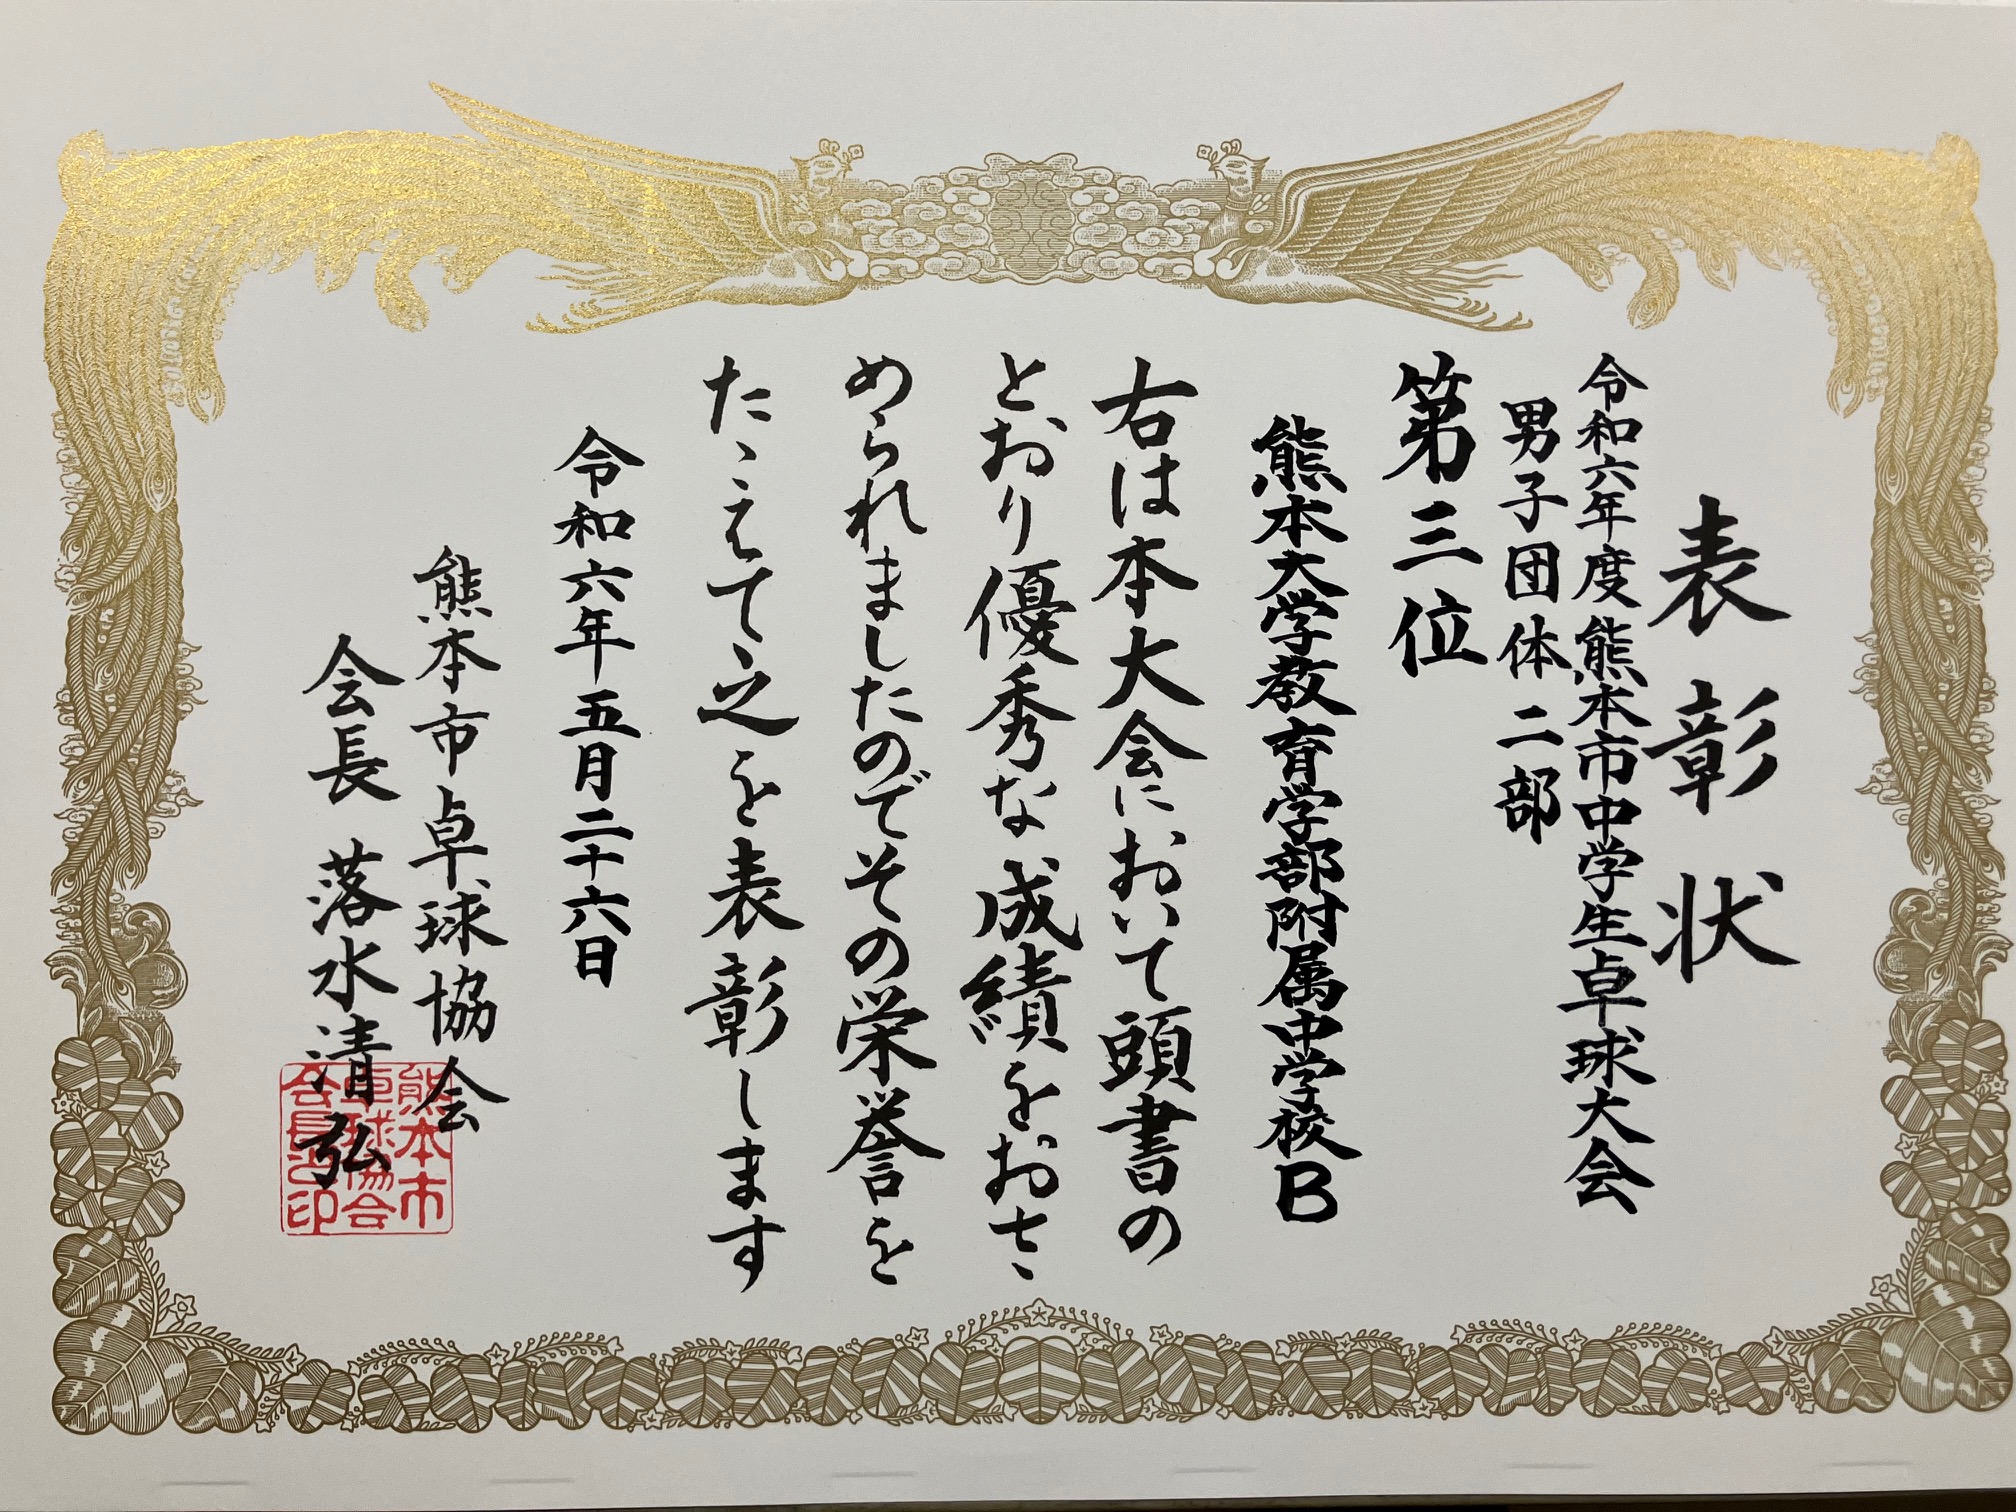 表彰状
令和六年度熊本市中学生卓球大会
男子団体二部
第三位
熊本大学教育学部附属中学校B
右は本大会において頭書の
とおり優秀な成績をおさ
められましたのでその栄誉を
たゝえて之を表彰します
令和六年五月二十六日
熊本市卓球協会
会長 落水清弘
熊本市
卓球協会
会長之印